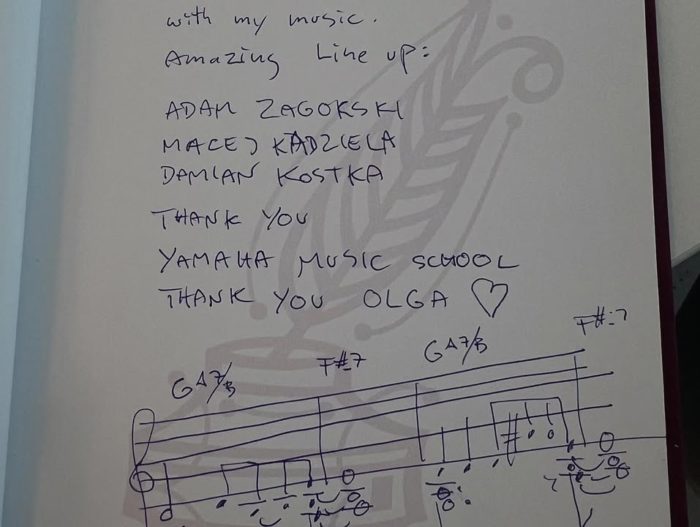 with my music.
Amazing Line up:
ADAM ZAGORSKI
MACEJ KĄDZIELA
DAMIAN KOSTKA
THANK YOU
YAMAHA MUSIC SCHOOL
THANK YOU OLGA ♡
G∆7/B F#-7 G∆7/B F#-7